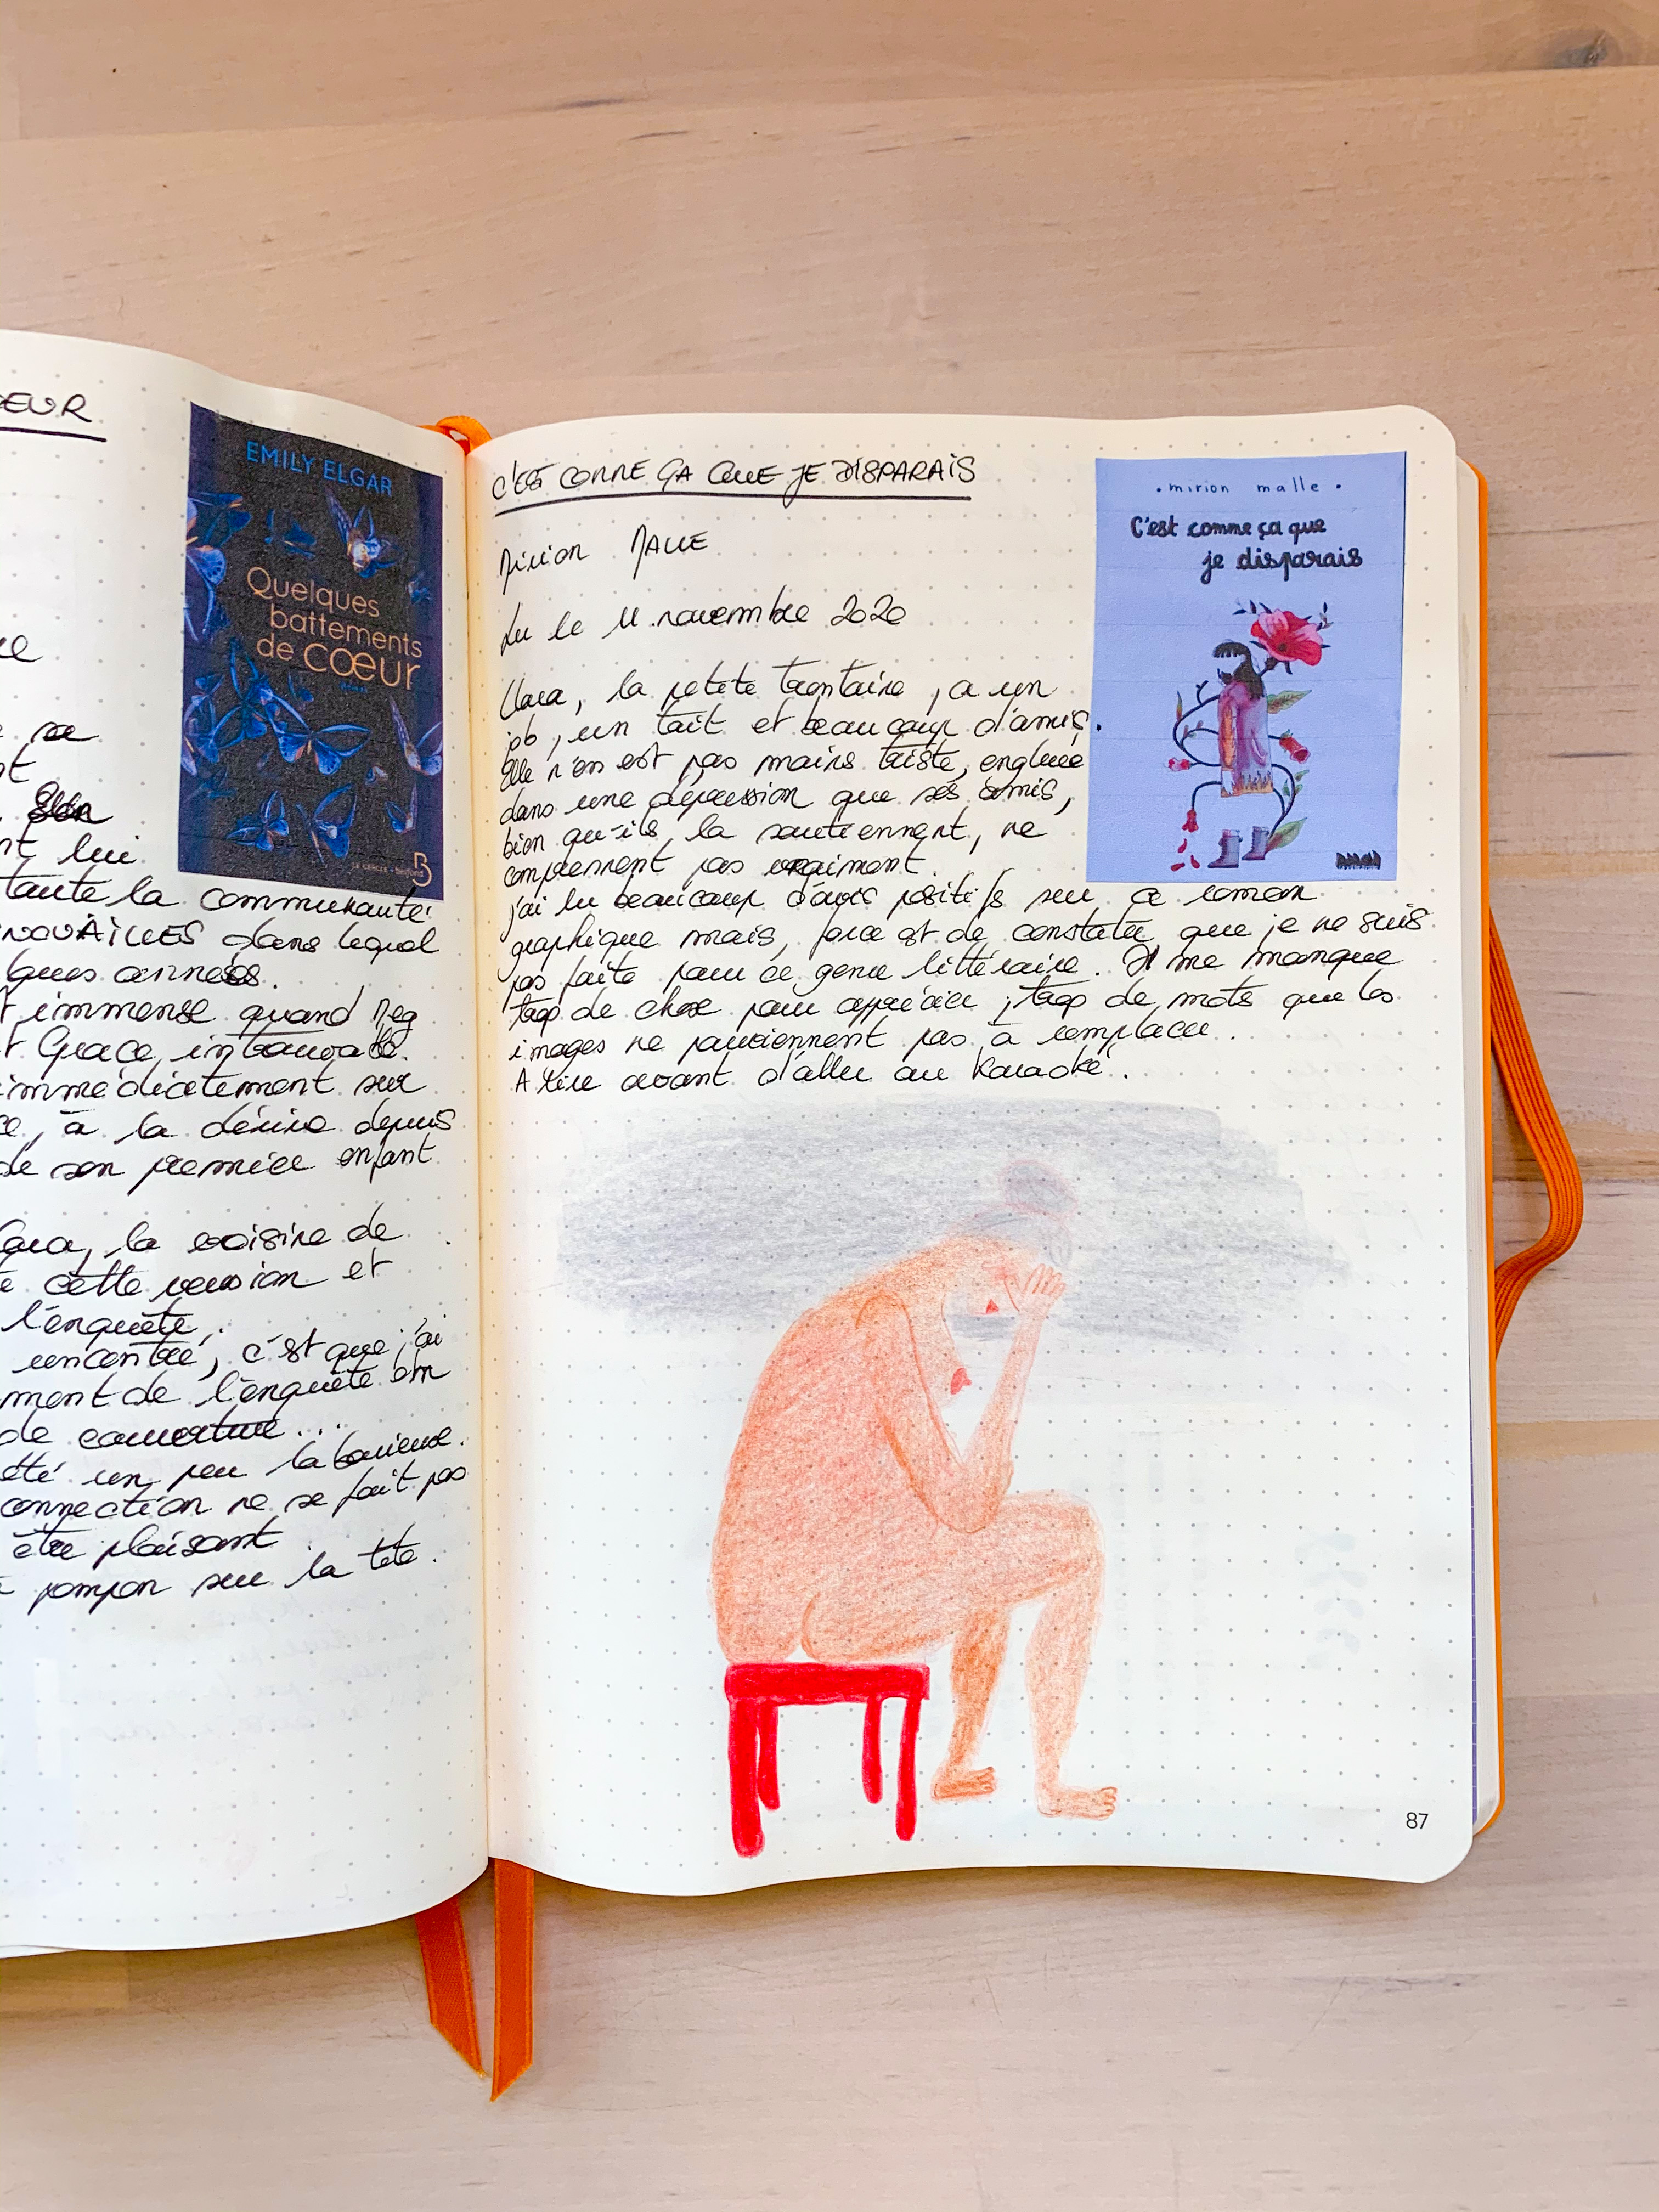 OEUR
EMILY ELGAR
Quelques
battements
de cœur
LE CERCLE • belfond
se
lui
toute la communauté
NOUAILLES dans lequel
ques années.
immense quand Meg
Grace, introuvable.
immédiatement sur
, à la dérive depuis
de son premier enfant
Cara, la voisine de
cette version et
l'enquête.
rencontré, c'est que j'ai
ment de l'enquête em
de couverture...
été un peu laborieuse.
connection ne se fait pas
être plaisant.
pompon sur la tête.
C'EST COMME ÇA QUE JE DISPARAIS
Mirion MALLE
Lu le 11 novembre 2020
Clara, la petite trentaine, a un
job, un toit et beaucoup d'amis.
Elle n'en est pas moins triste, engluée
dans une dépression que ses amis,
bien qu'ils la soutiennent, ne
comprennent pas vraiment.
j'ai lu beaucoup d'avis positifs sur ce roman
graphique mais, force est de constater que je ne suis
pas faite pour ce genre littéraire. Il me manque
trop de chose pour apprécier, trop de mots que les
images ne parviennent pas à remplacer...
A lire avant d'aller au karaoké.
• mirion malle •
C'est comme ça que
je disparais
87